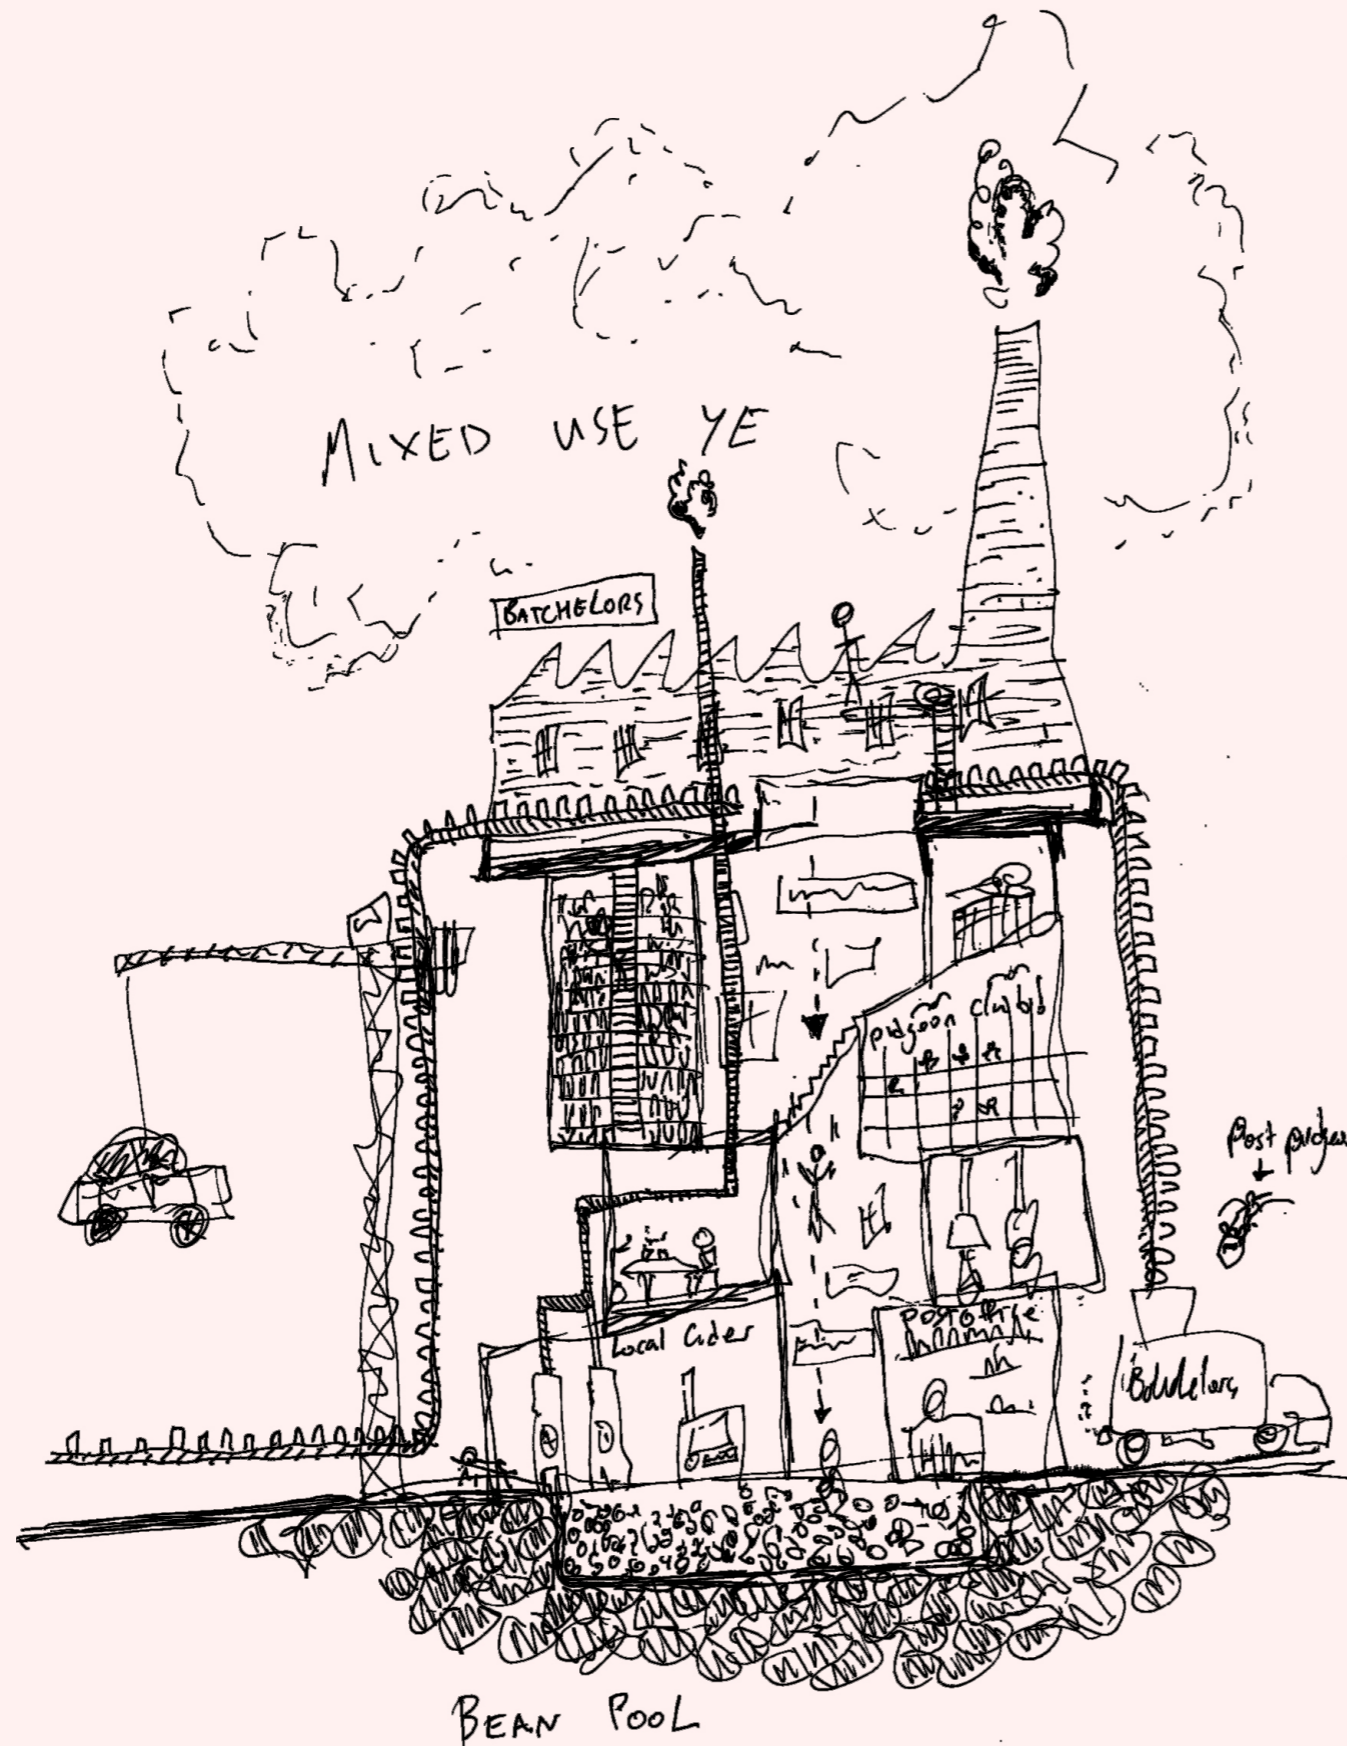 MIXED USE YE
BATCHELORS
pidgeon club
Post pidgeon
Local Cider
POST OFFICE
Batchelors
BEAN POOL